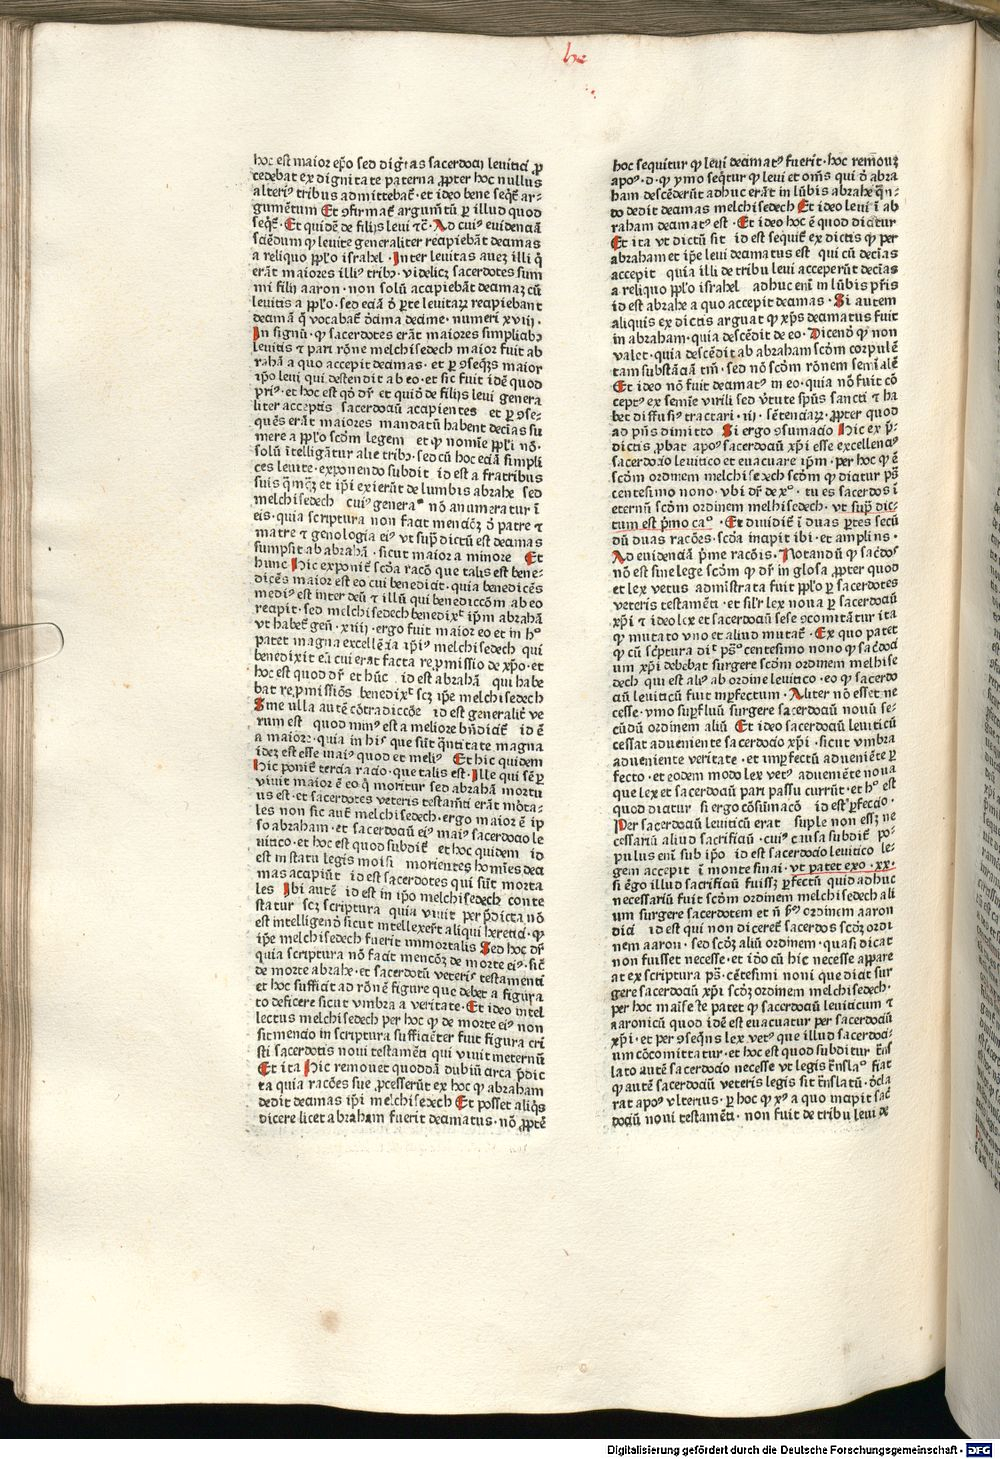 he
hoc est maior eꝑo sed dig̃tas sacerdocij leuitici ꝓ
cedebat ex dignitate paterna ꝓpter hoc nullus
alterꝰ tribus admittebat᷑ · et ideo bene seqt᷑ ar⸗
gumẽtum Et ꝯfirmat᷑ argum̃tũ ꝑ illud quod
seqt᷑ · Et quidẽ de filijs leui ⁊c̃ · Ad cuiꝰ euidenciã
sciẽdum ꝙ leuite generaliter recipiebãt decimas
a reliquo ppl̃o israhel · Inter leuitas autẽ illi q̃
erãt maiores illiꝰ tribꝰ · videlicꝫ sacerdotes sum
mi filij aaron · non solũ accipiebãt decimaꝫ cũ
leuitis a ppl̃o · sed eciã d̓ ꝑte leuitaꝝ recipiebant
decimã q̃ vocabat᷑ d̓cima decime · numeri xviij ·
In signũ · ꝙ sacerdotes erãt maiores simplicibꝰ
leuitis ⁊ pari rõne melchisedech maior fuit ab
rahã a quo accepit decimas · et ꝑ ꝯseq̃ꝫs maior
ip̃o leui qui descendit ab eo · et sic fuit idẽ quod
priꝰ · et hoc est qd̓ dr̃ et quid̓e de filijs leui genera
liter acceptis sacerdociũ accipientes et ꝑ ꝯse⸗
quẽs erãt maiores mandatũ habent decimas su
mere a ppl̃o scd̃m legem et ꝙ nomĩe ppl̃i nõ ·
solũ ĩtelligãtur alie tribꝰ · sed cũ hoc eciã simpli
ces leuite · exponendo subdit id est a fratribus
suis q̃mꝫ et ip̃i exierũt de lumbis abrahe sed
melchisedech cuiꝰ generaᵒ nõ anumeratur ĩ
eis · quia scriptura non facit mencõꝫ d̓ patre ⁊
matre ⁊ genologia eiꝰ vt supͣ dictũ est decimas
sumpsit ab abrahã · sicut maior a minore Et
hunc Hic exponit᷑ scd̃a racõ que talis est bene⸗
dicẽs maior est eo cui benedicit · quia benedicẽs
mediꝰ est inter deũ ⁊ illũ qui benediccõm ab eo
recipit · sed melchisedech benedixit ip̃m abrahã
vt habet᷑ geñ · xiiij · ergo fuit maior eo et in hᵒ
patet magna excellẽcia ip̃iꝰ melchisedech qui
benedixit eũ cui erat facta repͬmissio de xp̃o · et
hoc est quod dr̃ et hũc id est abrahã qui habe
bat repͬmissiões benedixit scꝫ ip̃e melchisedech
Sine ulla autẽ cõtradiccõe id est generalit᷑ ve
rum est quod minꝰ est a meliore bñdicit᷑ id ẽ
a maiore · quia in his que sũt q̃ntitate magna
ideꝫ est esse maiꝰ quod et meliꝰ Et hic quidem
Hic ponit᷑ tercia racio · que talis est · Ille qui sẽꝑ
viuit maior ẽ eo q̃ moritur sed abrahã mortu
us est · et sacerdotes veteris testam̃ti erãt mõta⸗
les non sic aut᷑ melchisedech · ergo maior ẽ ip
so abraham · et sacerdociũ eiꝰ maiꝰ sacerdocio le
uitico · et hoc est quod subdit᷑ et hoc quidem id
est in statu legis moisi morientes homĩes deci
mas accipiũt id est sacerdotes qui sũt morta
les Ibi autẽ id est in ip̃o melchisedech conte
statur scꝫ scriptura quia viuit per p̃dicta nõ
est intelligend̓ sicut intellexer̃t aliqui heretici · ꝙ
ip̃e melchisedech fuerit immortalis Sed hoc dr̃
quia scriptura nõ facit mencõꝫ de morte eiꝰ · sic᷑
de morte abrahe · et sacerdotũ veteris testamenti
et hoc sufficit ad rõnẽ figure que debet a figura
to deficere sicut vmbra a veritate · Et ideo intel
lectus melchisedech per hoc ꝙ de morte eiꝰ non
sit mencio in scriptura sufficiẽter fuit figura cri
sti sacerdotis noui testamẽti qui viuit ineternũ
Et ita Hic remouet quoddã dubiũ circa p̃dic
ta quia racões sue ꝓcesserũt ex hoc ꝙ abraham
dedit decimas ip̃i melchisedech Et posset aliq̃s
dicere licet abraham fuerit decimatus · nõ ꝓptẽ
hoc sequitur ꝙ leui decimatꝰ fuerit · hoc remouꝫ
apoꝰ · d · ꝙ ymo seq̃tur ꝙ leui et om̃s qui d̓ abra
ham descẽderũt adhuc erãt in lũbis abrahe q̃n⸗
do dedit decimas melchisedech Et ideo leui ĩ ab
raham decimatꝰ est · Et ideo hoc ẽ quod dicitur
Et ita vt dictũ sit id est sequit᷑ ex dictis ꝙ per
abraham et ip̃e leui decimatus est qui cũ decĩas
accepit quia illi de tribu leui acceperũt decĩas
a reliquo ppl̃o israhel adhuc enĩ in lũbis pr̃is
id est abrahe a quo accepit decimas · Si autem
aliquis ex dictis arguat ꝙ xp̃s decimatus fuit
in abraham · quia descẽdit de eo · Dicend̓ ꝙ non
valet · quia descẽdit ab abraham scd̃m corpulẽ
tam substãciã tm̃ · sed nõ scd̃m rõnem semĩalẽ
Et ideo nõ fuit decimatꝰ in eo · quia nõ fuit cõ
ceptꝰ ex semĩe virili sed v̓tute sp̃us sancti ⁊ ha
bet diffusiꝰ tractari · iij · sẽtenciaꝝ · ꝓpter quod
ad p̃ñs dimitto Si ergo ꝯsumacio Hic ex p̃⸗
dictis ꝓbat apoꝰ sacerdociũ xp̃i esse excellenciꝰ
sacerdocio leuitico et euacuare ip̃m · per hoc ꝙ ẽ
scd̃m ordinem melchisedech scd̃m ꝙ dicitur ps̃
centesimo nono · vbi dr̃ de xᵒ · tu es sacerdos ĩ
eternũ scd̃m ordinem melhisedech · vt supͣ dic⸗
tum est p̃mo caᵒ · Et diuidit᷑ ĩ duas ꝑtes secũ
dũ duas racões · scd̃a incipit ibi · et amplius ·
Ad euidenciã p̃me racõis · Notandũ ꝙ sacd̓os
nõ est sine lege scd̃m ꝙ dr̃ in glosa ꝓpter quod
et lex vetus admistrata fuit ppl̃o ꝑ sacerdotes
veteris testamẽti · et sil̃r lex noua ꝑ sacerdociũ
xp̃i ⁊ ideo lex et sacerdociũ sese ꝯcomitãtur ita
ꝙ mutato vno et aliud mutat᷑ · Ex quo patet
ꝙ cũ sc̃ptura dicᵗ psᵒ centesimo nono ꝙ sacd̓oci
um xp̃i debebat surgere scd̃m ordinem melhise
dech qui est aliꝰ ab ordine leuitico · eo ꝙ sacerdo
ciũ leuiticũ fuit inꝑfectum · Aliter nõ esset ne
cesse · ymo suꝑfluũ surgere sacerdociũ nouũ se⸗
cũdũ ordinem aliũ Et ideo sacerdociũ leuiticũ
cessat adueniente sacerdocio xp̃i · sicut vmbra
adueniente veritate · et imꝑfectũ adueniẽte ꝑ
fecto · et eodem modo lex vetꝰ adueniẽte noua
que lex et sacerdociũ pari passu currũt · et hᵒ est
quod dicitur si ergo cõsũmaciõ id est ꝑfeccio ·
Per sacerdociũ leuiticũ erat suple non eẽꝫ ne
cessariũ aliud sacrificiũ · cuiꝰ causa subdit᷑ po⸗
pulus enĩ sub ip̃o id est sacerdocio leuitico le⸗
gem accepit ĩ monte sinai · vt patet exo · xx ·
si ẽgo illud sacrificiũ fuissꝫ ꝑfectũ quid adhuc
necessariũ fuit scd̃m ordinem melchisedech ali
um surgere sacerdotem et ñ scd̃m ordinem aaron
dici id est qui non diceret᷑ sacerdos scd̃ꝫ ordi
nem aaron · sed scd̃ꝫ aliũ ordinem · quasi dicat
non fuisset necesse · et id̓o cũ hic necesse appare
at ex scriptura ps̃ · cẽtesimi noni que dicit sur
gere sacerdociũ xp̃i scd̃ꝫ ordinem melchisedech ·
per hoc maĩfeste patet ꝙ sacerdociũ leuiticum ⁊
aaronicũ quod idẽ est euacuatur per sacerdociũ
xp̃i · et per ꝯseq̃ns lex vetꝰ que illud sacerdoci⸗
um cõcomittatur · et hoc est quod subditur t᷑nſ
lato autẽ sacerdocio necesse vt legis t᷑nslaᵒ fiat
ꝙ autẽ sacerdociũ veteris legis sit t᷑nslatũ · d̓cla
rat apoꝰ vlterius · ꝑ hoc ꝙ xᵒ a quo incipit sac̃
dociũ noui testamẽti · non fuit de tribu leui de
Digitalisierung gefördert durch die Deutsche Forschungsgemeinschaft - DFG